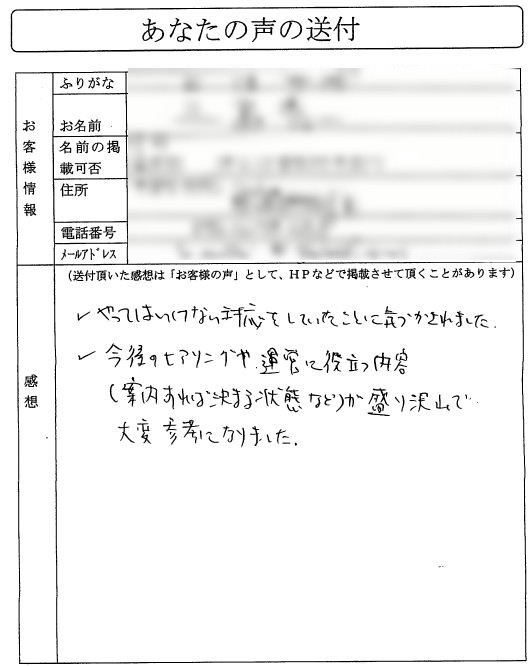 あなたの声の送付
お客様情報
ふりがな
お名前
名前の掲
載可否
住所
電話番号
メールアドレス
感想
(送付頂いた感想は「お客様の声」として、HPなどで掲載させて頂くことがあります)
✓ やってはいけない対応をしていたことに気づかされました.
✓ 今後のヒアリングや運営に役立つ内容
(案内すれば決まる状態など)が盛り沢山で
大変参考になりました.